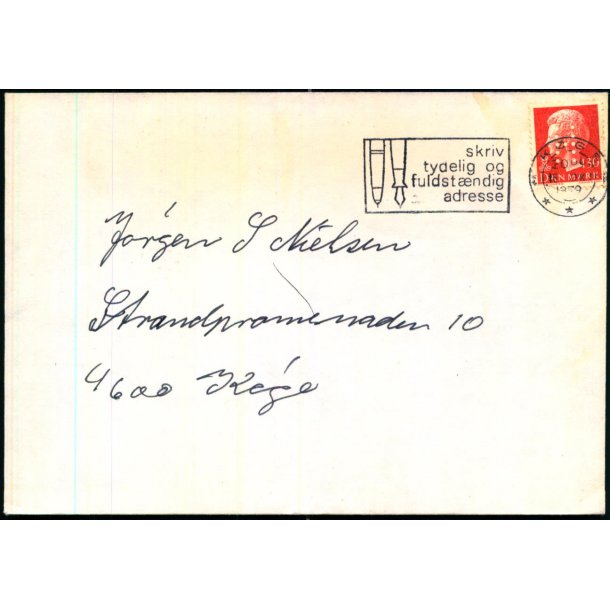 skriv
tydelig og
fuldstændig
adresse
KØGE
1979
130
DANMARK
Jórgen S Nielsen
Strandpromenaden 10
4600 Kóge